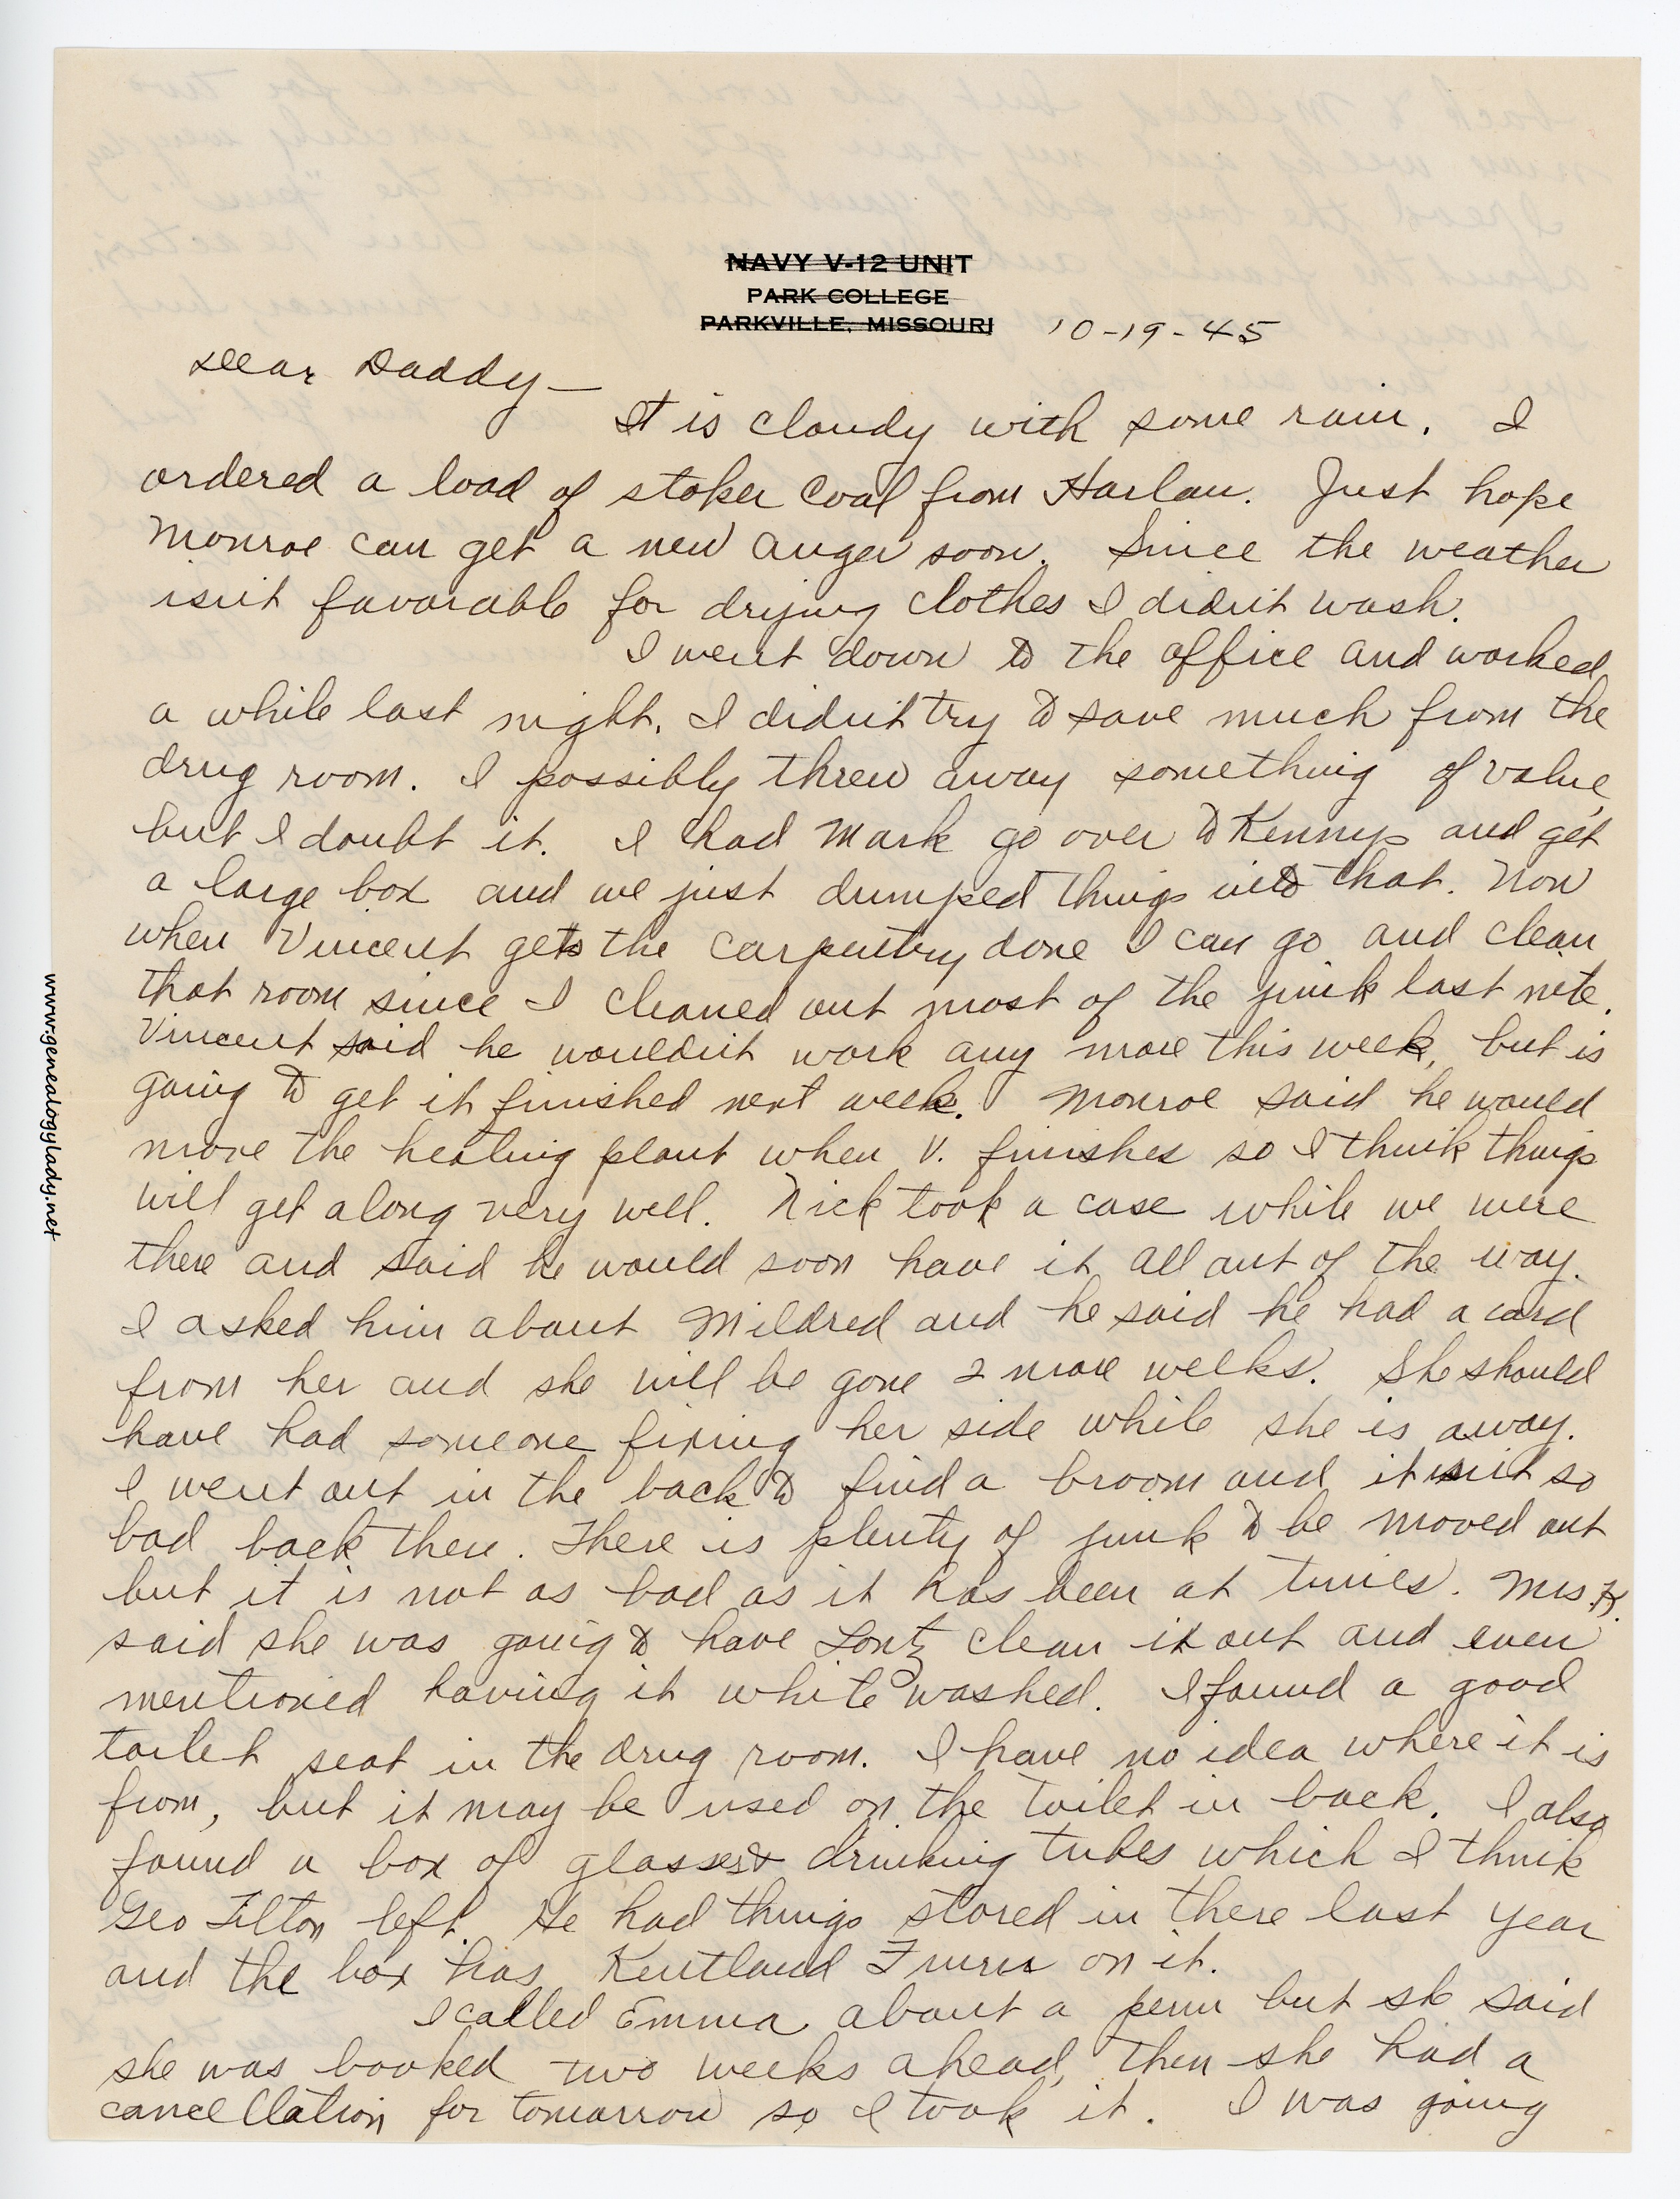 NAVY V-12 UNIT
PARK COLLEGE
PARKVILLE, MISSOURI 10-19-45
Dear Daddy—
It is cloudy with some rain. I
ordered a load of stoker coal from Harlan. Just hope
Monroe can get a new auger soon. Since the weather
isn't favorable for drying clothes I didn't wash.
I went down to the office and worked
a while last night. I didn't try to save much from the
drug room. I possibly threw away something of value,
but I doubt it. I had Mark go over to Kennys and get
a large box and we just dumped things into that. Now
when Vincent gets the carpentry done I can go and clean
that room since I cleaned out most of the junk last nite.
Vincent said he wouldn't work any more this week, but is
going to get it finished next week. Monroe said he would
move the heating plant when V. finishes so I think things
will get along very well. Rick took a case while we were
there and said he would soon have it all out of the way.
I asked him about Mildred and he said he had a card
from her and she will be gone 2 more weeks. She should
have had someone fixing her side while she is away.
I went out in the back to find a broom and it isn't so
bad back there. There is plenty of junk to be moved out
but it is not as bad as it has been at times. Mrs. K.
said she was going to have Lontz clean it out and even
mentioned having it white washed. I found a good
toilet seat in the drug room. I have no idea where it is
from, but it may be used on the toilet in back. I also
found a box of glasses & drinking tubes which I think
Geo Tilton left. He had things stored in there last year
and the box has Kentland on it.
I called Emma about a perm but she said
she was booked two weeks ahead, then she had a
cancellation for tomorrow so I took it. I was going
www.genealogylady.net